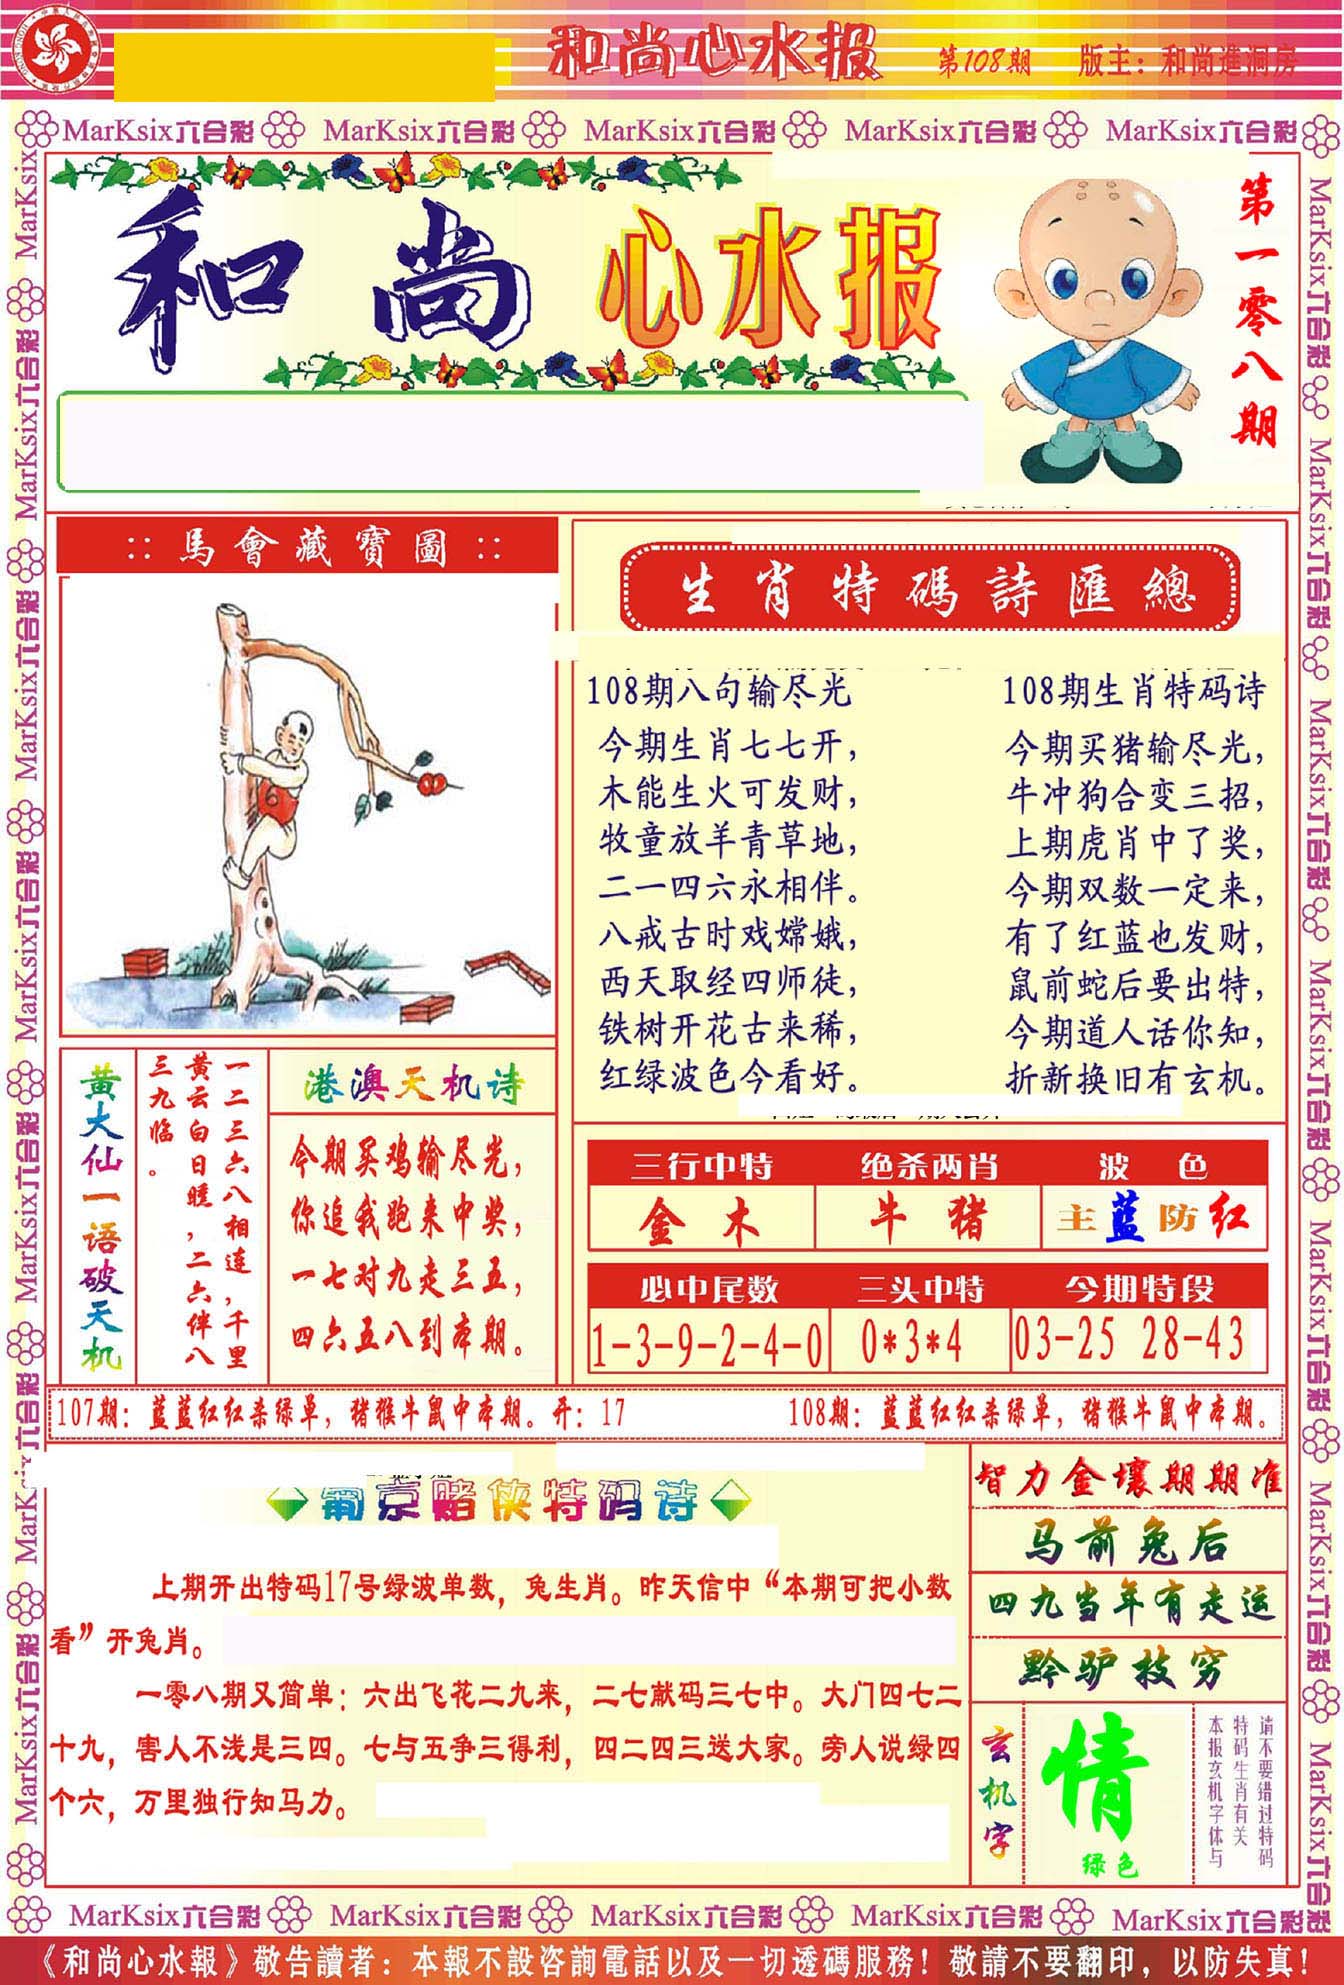 和尚心水报 第108期 版主：和尚進洞房
MarKsix六合彩 MarKsix六合彩 MarKsix六合彩 MarKsix六合彩 MarKsix六合彩
和尚心水报
第一零八期
::馬會藏寶圖::
黄大仙一语破天机
一二三六八相连，千里
黄云白日曛，二六伴八
三九临。
港澳天机诗
今期买鸡输尽光，
你追我跑来中奖，
一七对九走三五，
四六五八到本期。
生肖特碼詩匯總
108期八句输尽光
今期生肖七七开，
木能生火可发财，
牧童放羊青草地，
二一四六永相伴。
八戒古时戏嫦娥，
西天取经四师徒，
铁树开花古来稀，
红绿波色今看好。
108期生肖特码诗
今期买猪输尽光，
牛冲狗合变三招，
上期虎肖中了奖，
今期双数一定来，
有了红蓝也发财，
鼠前蛇后要出特，
今期道人话你知，
折新换旧有玄机。
三行中特 绝杀两肖 波色
金木 牛猪 主蓝防红
必中尾数 三头中特 今期特段
1-3-9-2-4-0 0*3*4 03-25 28-43
107期：蓝蓝红红杀绿单，猪猴牛鼠中本期。开：17 108期：蓝蓝红红杀绿单，猪猴牛鼠中本期。
葡京赌侠特码诗
上期开出特码17号绿波单数，兔生肖。昨天信中“本期可把小数
看”开兔肖。
一零八期又简单：六出飞花二九来，二七献码三七中。大门四七二
十九，害人不浅是三四。七与五争三得利，四二四三送大家。旁人说绿四
个六，万里独行知马力。
智力金壤期期准
马前兔后
四九当年有走运
黔驴技穷
玄机字
情
绿色
请不要错过特码
特码生肖有关
本报玄机字体与
MarKsix六合彩 MarKsix六合彩 MarKsix六合彩 MarKsix六合彩 MarKsix六合彩
《和尚心水報》敬告讀者：本報不設咨詢電話以及一切透碼服務！敬請不要翻印，以防失真！